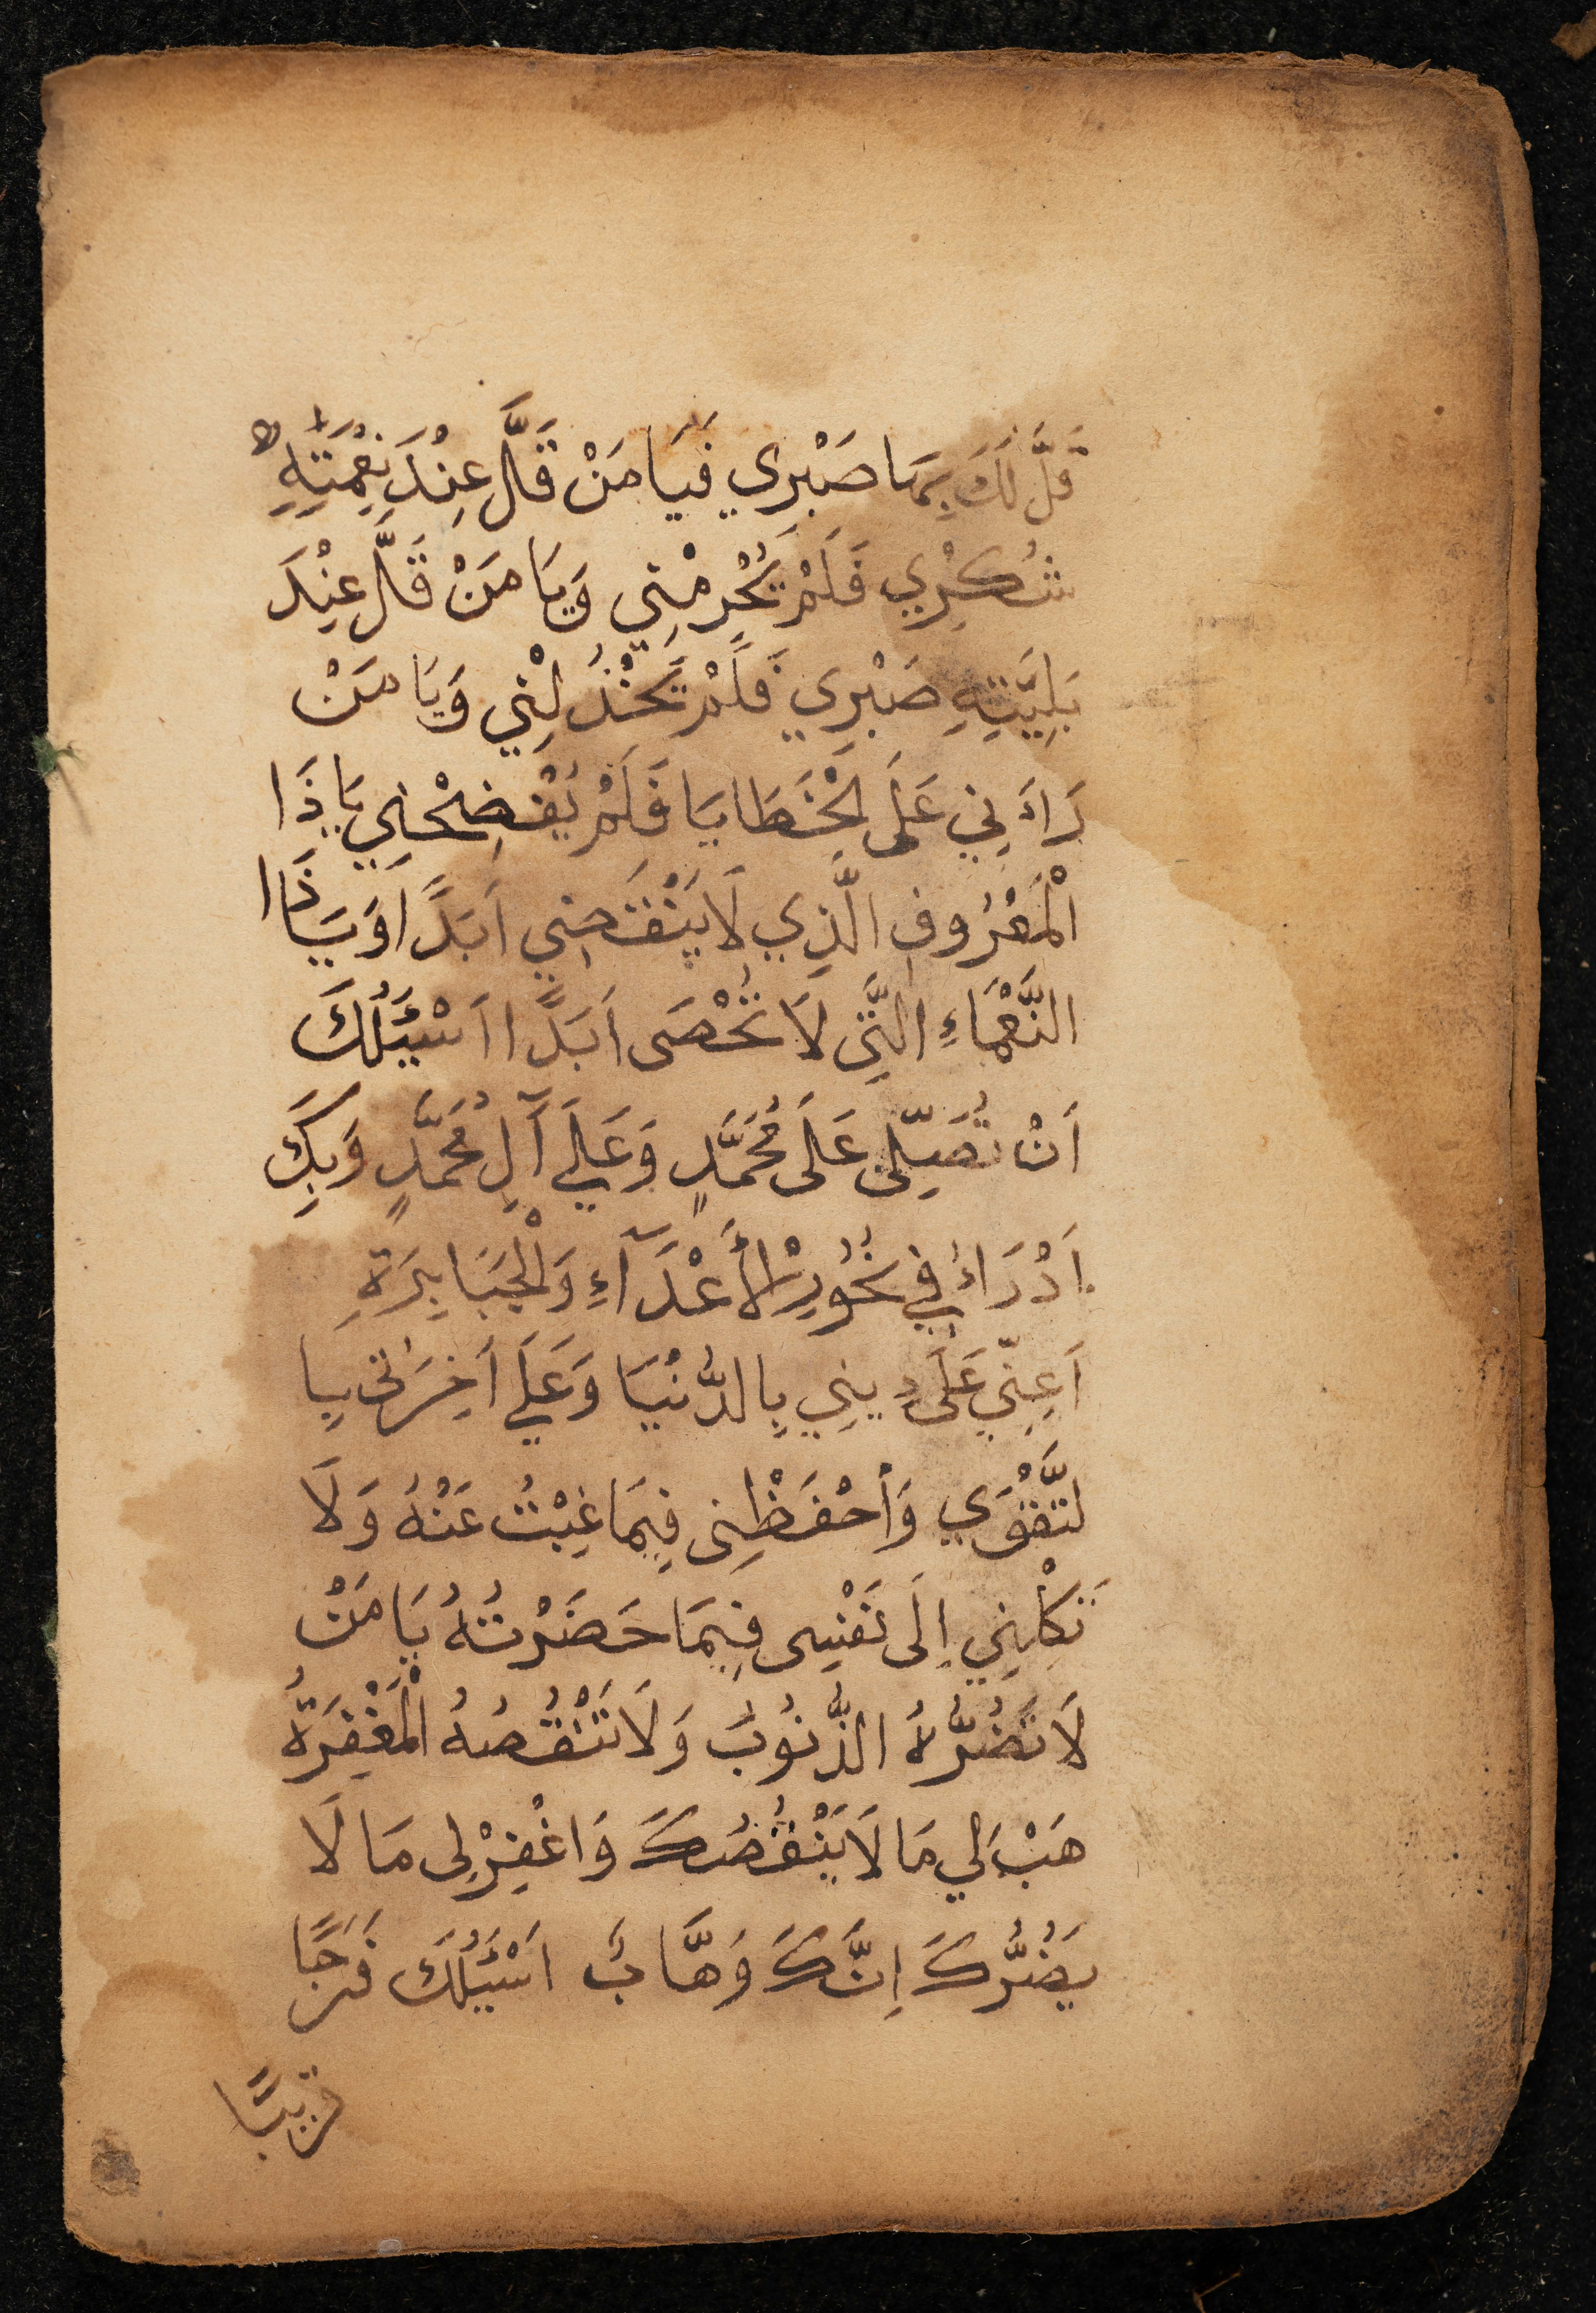 قَلَّ لَكَ بِهَا صَبْرِي فَيَا مَنْ قَلَّ عِنْدَ نِعْمَتِهِ
شُكْرِي فَلَمْ يَحْرِمْنِي وَيَا مَنْ قَلَّ عِنْدَ
بَلِيَّتِهِ صَبْرِي فَلَمْ يَخْذُلْنِي وَيَا مَنْ
رَاءَنِي عَلَى الْخَطَايَا فَلَمْ يَفْضِحْنِي يَا ذَا
الْمَعْرُوفِ الَّذِي لَا يَنْقَضِي اَبَدًا وَيَا ذَا
النَّعْمَاءِ الَّتِى لَا تُحْصَى اَبَدًا اَسْئَلُكَ
اَنْ تُصَلِّىَ عَلَى مُحَمَّدٍ وَعَلَي آلِ مُحَمَّدٍ وَبِكَ
اَدْرَاءُ فِي نُحُورِ الْأَعْدَآءِ وَالْجَبَابِرَةِ
اَعِنِّي عَلَى دِينِي بِالدُّنْيَا وَعَلَي اَخِرَتِى بِا
لتَّقْوَي وَاْحْفَظْنِى فِيمَا غِبْتُ عَنْهُ وَلَا
تَكِلْنِي اِلَى نَفْسِى فِيمَا حَضَرْتُهُ يَا مَنْ
لَا تَضُرُّهُ الذُّنُوبُ وَلَا تَنْقُصُهُ الْمَغْفِرَةُ
هَبْ لِي مَا لَا يَنْقُصُكَ وَاغْفِرْ لِى مَا لَا
يَضُرُّكَ اِنَّكَ وَهَّابٌ اَسْئَلُكَ فَرَجًا
قريبًا